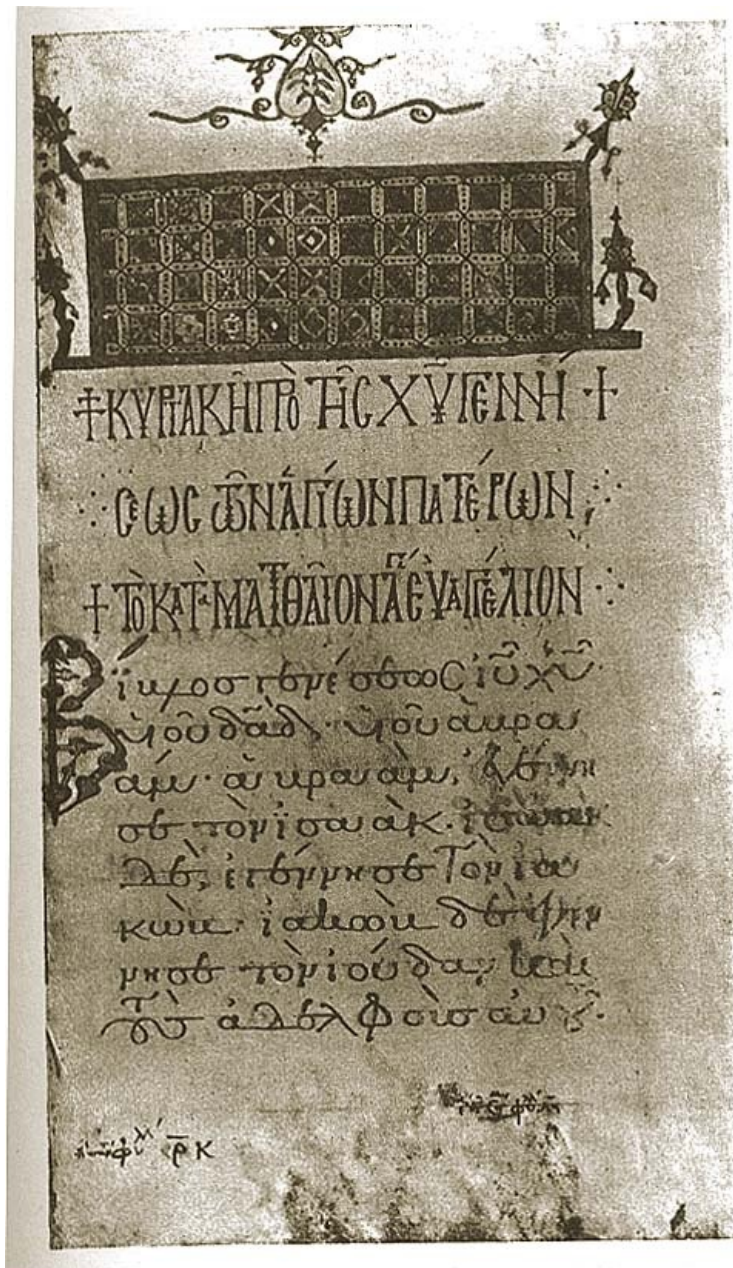 ‡ΚΥΡΙΑΚῊ ΠΡῸ ΤΗ͂Σ ΧΥ͂ ΓΕΝΝΉ +
ΣΕΩΣ ΤΩ͂Ν ἉΓΊΩΝ ΠΑΤΈΡΩΝ
+ ΤῸ ΚΑΤᾺ ΜΑΤΘΑΙ͂ΟΝ ἍΓΙ ΕΥ̓ΑΓΓΈΛΙΟΝ
Βίβλοσ γενέσεως ἰῦ χῦ
υἱοῦ δᾱδ· υἱοῦ ἀβρα
άμ· ἀβραὰμ ἐγέννη
σε τὸν ἰσαὰκ· ἰσαὰκ
δὲ, ἐγέννησε τὸν ἰα
κώβ· ἰακὼβ δὲ ἐγέν
νησε τὸν ἰούδαν καὶ
τοὺσ ἀδελφοὺσ αὐτοῦ·
ρ̄κ